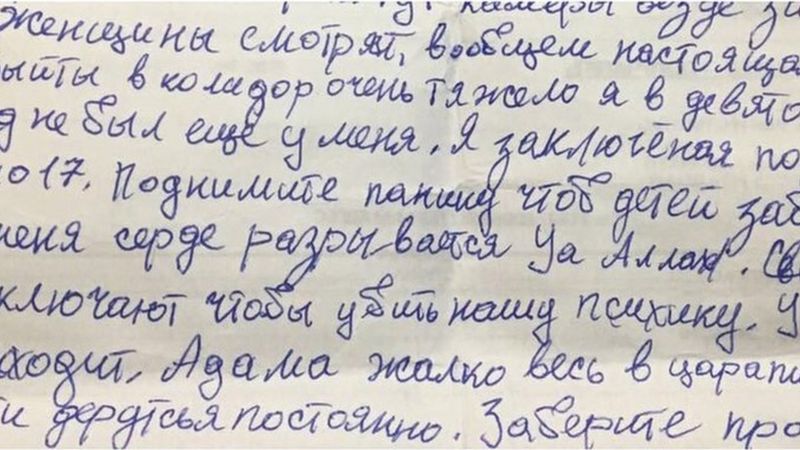 камеры везде за
женщины смотрят, вообщем настояща
выйты в колидор очень тяжело я в девято
д не был еще у меня. Я заключёная по
2017. Поднимите панику чтоб детей заб
меня серде разрывается Уа Аллах. Св
ключают чтобы убить нашу психику. У
ходит, Адама жалко весь в царапи
ти дердтсья постоянно. Заберите про